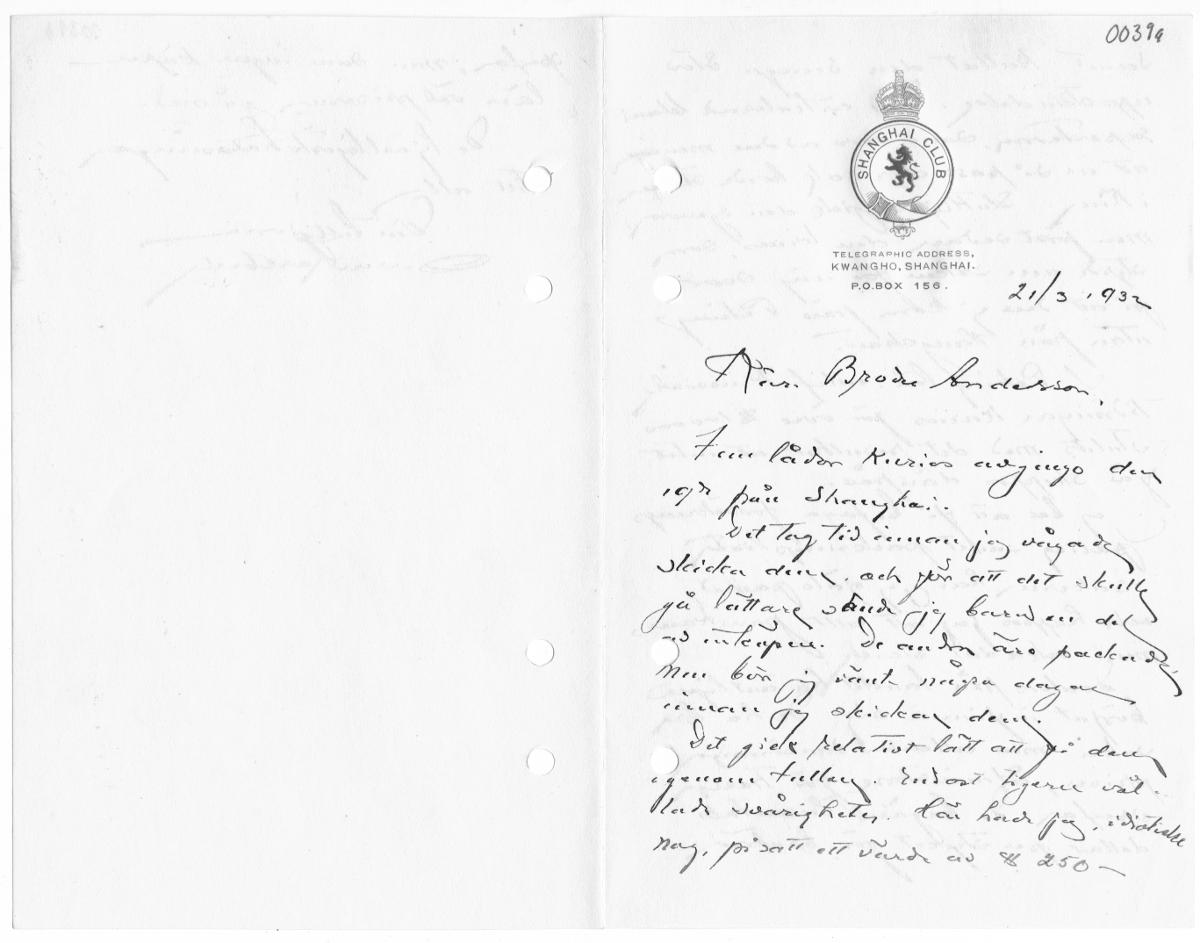 0039a
SHANGHAI CLUB
TELEGRAPHIC ADDRESS,
KWANGHO, SHANGHAI.
P.O.BOX 156.
21/3 1932
Käre Broder Andersson,
Fem lådor Kurios avgingo den
19de från Shanghai.
Det tog tid innan jag vågade
skicka dem, och för att det skulle
gå lättare sände jag bara en del
av inköpen. De andra äro packade,
men bör jag vänta några dagar
innan jag skickar dem.
Det gick relativt lätt att få dem
igenom tullen. Endast tigern vål-
lade svårigheter. Här hade jag, idiotiskt
nog, påsatt ett värde av $ 250 —